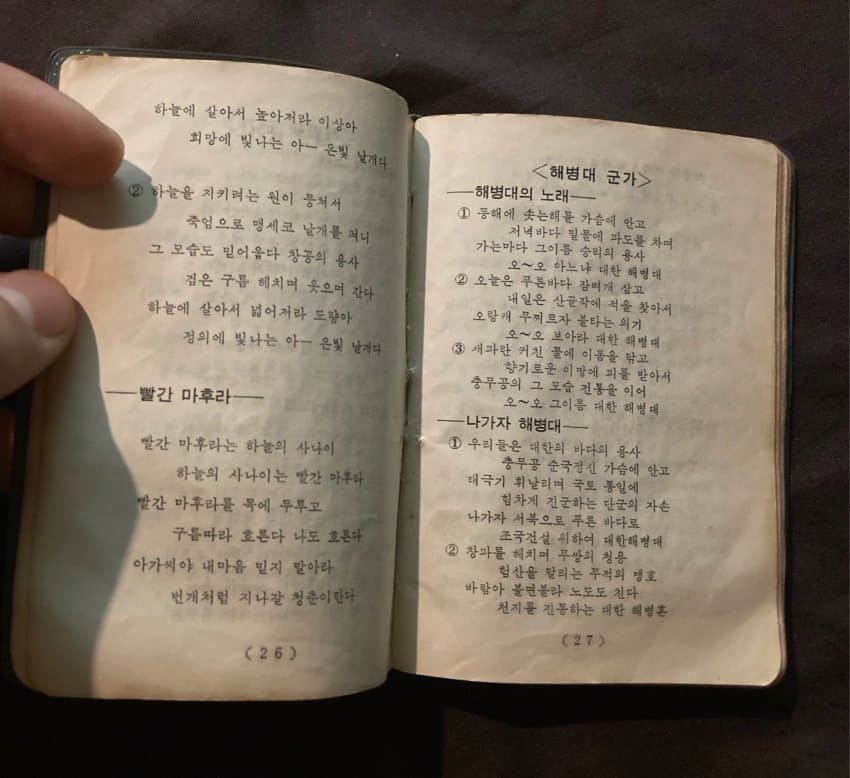 하늘에 살아서 높아저라 이상아
희망에 빛나는 아— 은빛 날개다
② 하늘을 지키려는 원이 뭉쳐서
죽엄으로 맹세코 날개를 펴니
그 모습도 믿어웁다 창공의 용사
검은 구름 헤치며 웃으며 간다
하늘에 살아서 넓어저라 도량아
정의에 빛나는 아— 은빛 날개다
——빨간 마후라——
빨간 마후라는 하늘의 사나이
하늘의 사나이는 빨간 마후라
빨간 마후라를 목에 두루고
구름따라 흐른다 나도 흐른다
아가씨야 내마음 믿지 말아라
번개처럼 지나갈 청춘이란다
(26)
<해병대 군가>
——해병대의 노래——
① 동해에 솟는해를 가슴에 안고
저녁바다 밀물에 파도를 차며
가는마다 그이름 승리의 용사
오~오 아느냐 대한 해병대
② 오늘은 푸른바다 잠벼개 삼고
내일은 산골작에 적을 찾아서
오랑캐 무찌르자 불타는 의기
오~오 보아라 대한 해병대
③ 새파란 커진 물에 이몸을 닦고
향기로운 이땅에 피를 받아서
충무공의 그 모습 전통을 이어
오~오 그이름 대한 해병대
——나가자 해병대——
① 우리들은 대한의 바다의 용사
충무공 순국정신 가슴에 안고
태극기 휘날리며 국토 통일에
힘차게 진군하는 단군의 자손
나가자 서북으로 푸른 바다로
조국건설 위하여 대한해병대
② 창파를 헤치며 무쌍의 청용
험산을 달리는 무적의 맹호
바람아 불면불라 노도도 친다
천지를 진동하는 대한 해병혼
(27)